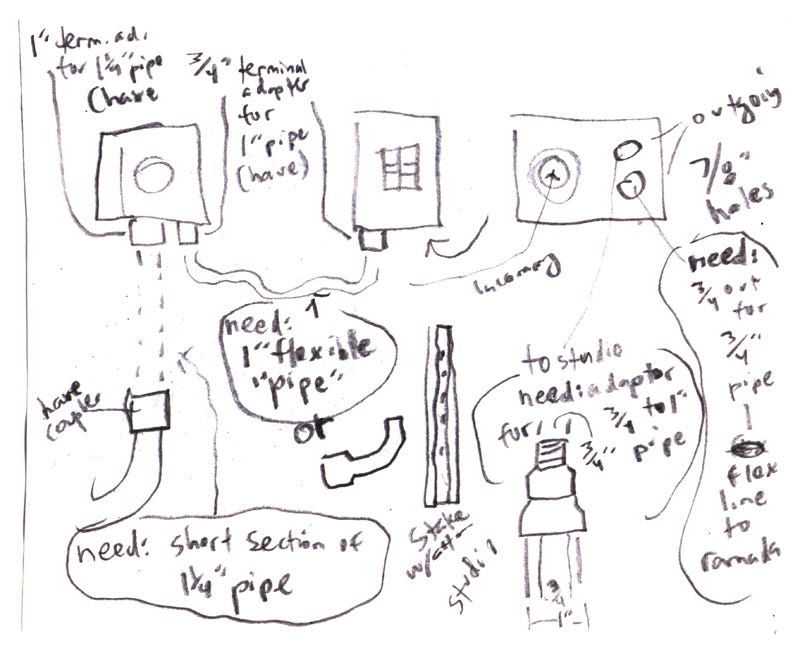 1" term. ad.
for 1 1/4" pipe
(have
3/4" terminal
adapter
for
1" pipe
(have)
outgoing
7/8"
holes
incoming
need: 1
1" flexible
"pipe"
or
have
coupler
need: short section of
1 1/4" pipe
stake
studio
to studio
need: adaptor
for 3/4 to 1"
3/4" pipe
3/4
1"
need:
3/4 out
for
3/4"
pipe
flex
line
to
ramada